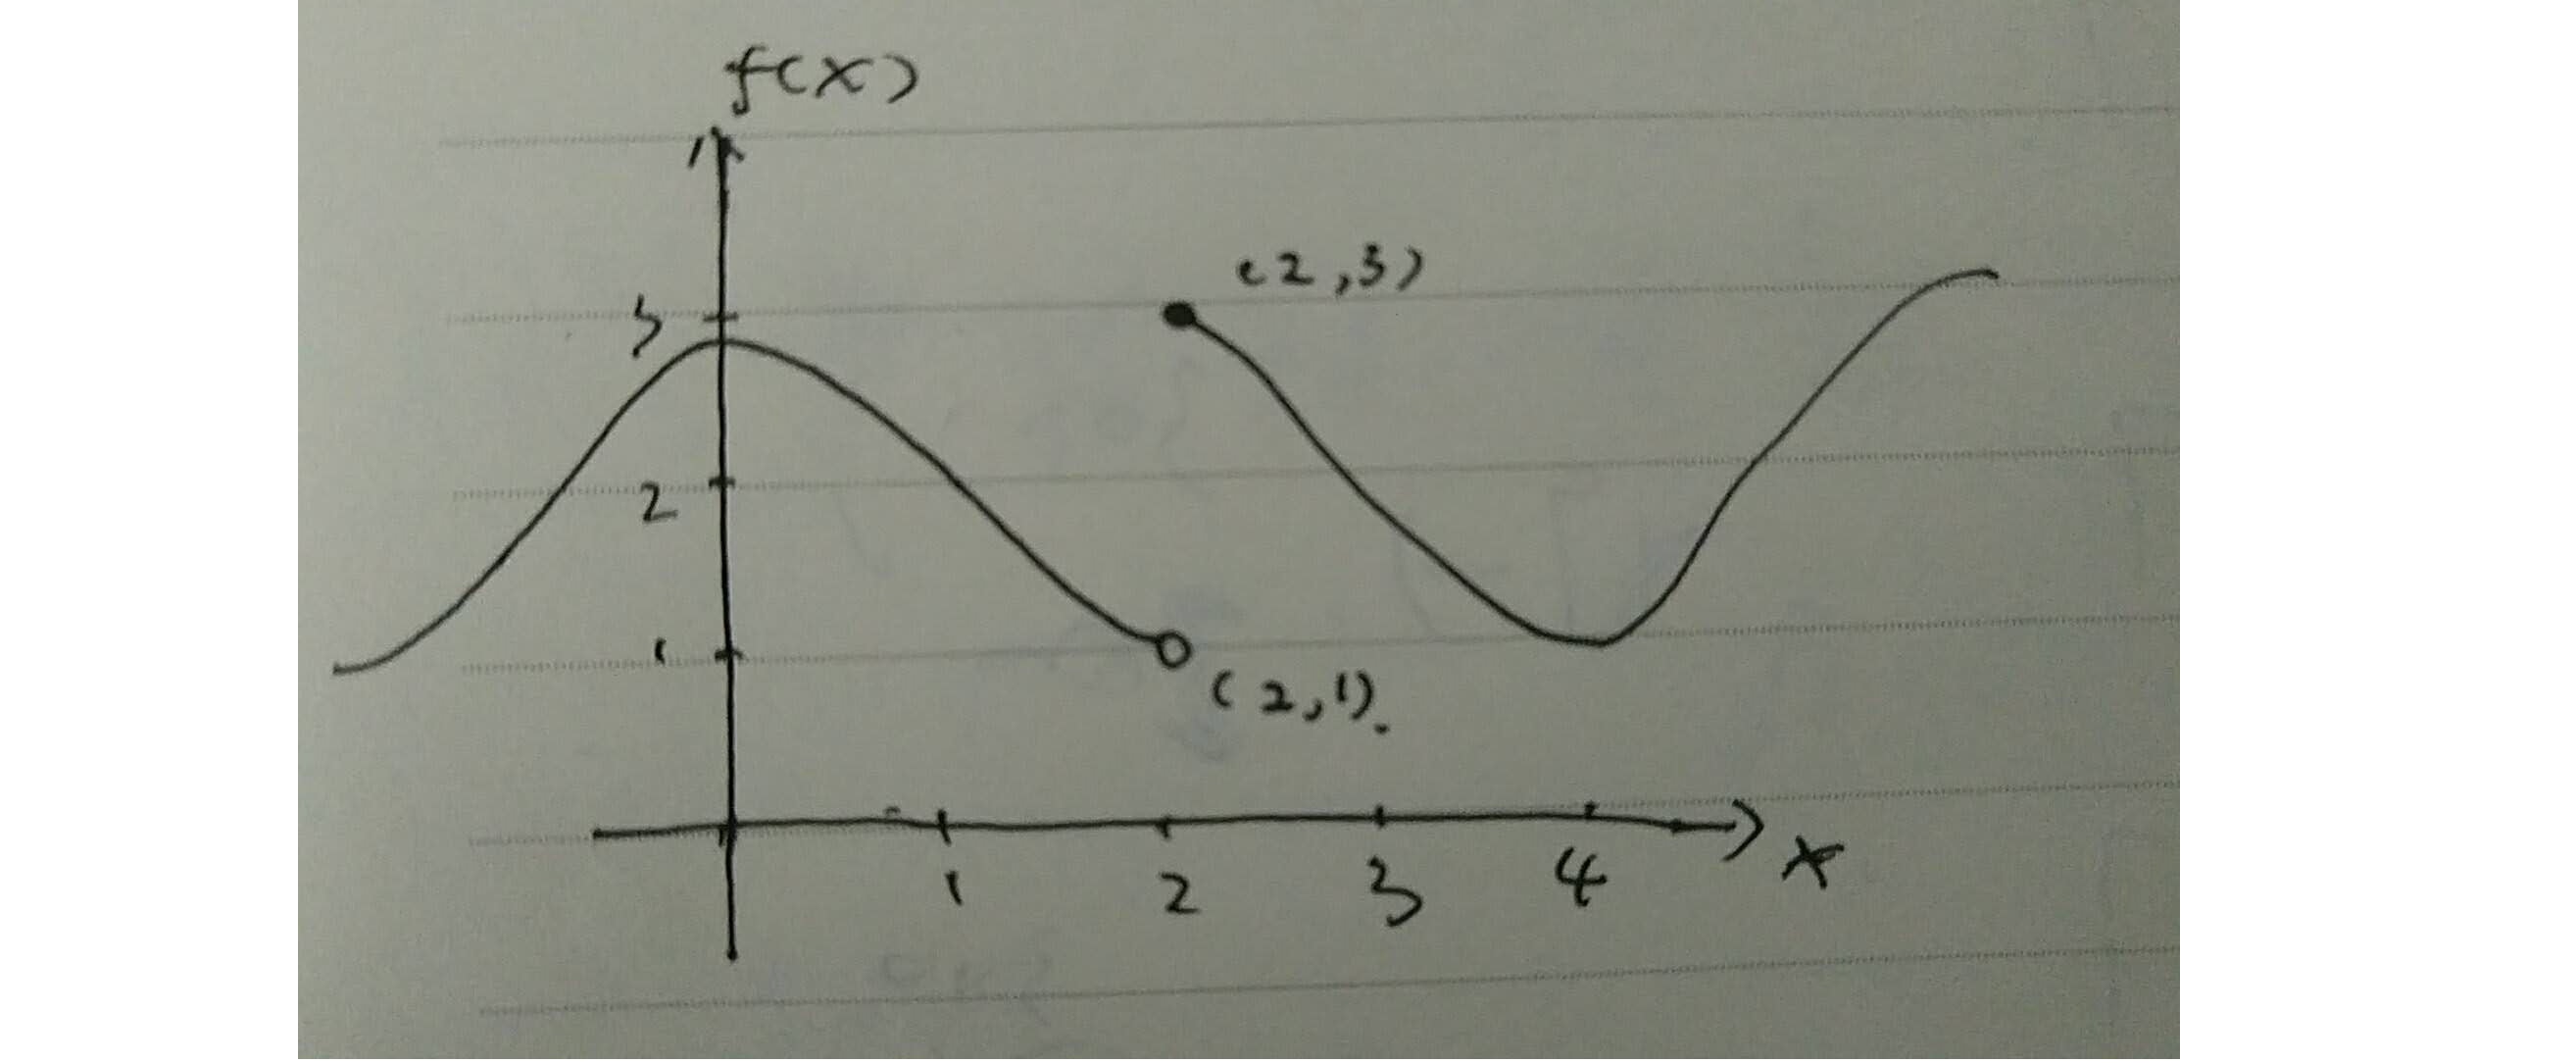 f(x)
(2,3)
3
2
1
(2,1).
1 2 3 4 x